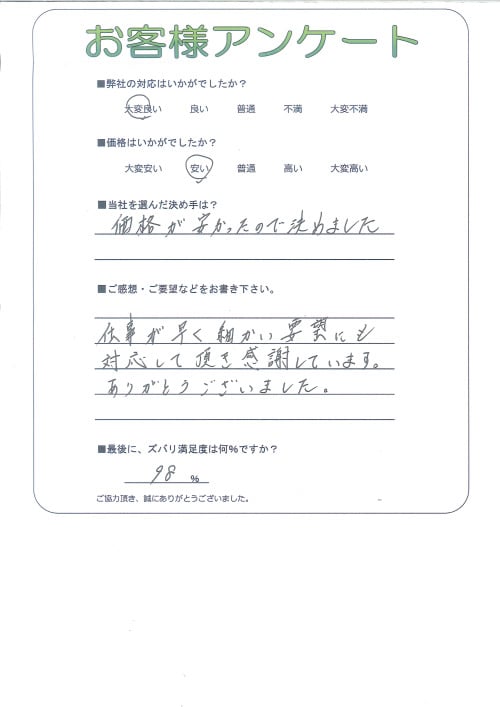 お客様アンケート
■弊社の対応はいかがでしたか？
大変良い 良い 普通 不満 大変不満
■価格はいかがでしたか？
大変安い 安い 普通 高い 大変高い
■当社を選んだ決め手は？
価格が安かったので決めました
■ご感想・ご要望などをお書き下さい。
仕事が早く細かい要望にも
対応して頂き感謝しています。
ありがとうございました。
■最後に、ズバリ満足度は何％ですか？
98 ％
ご協力頂き、誠にありがとうございました。